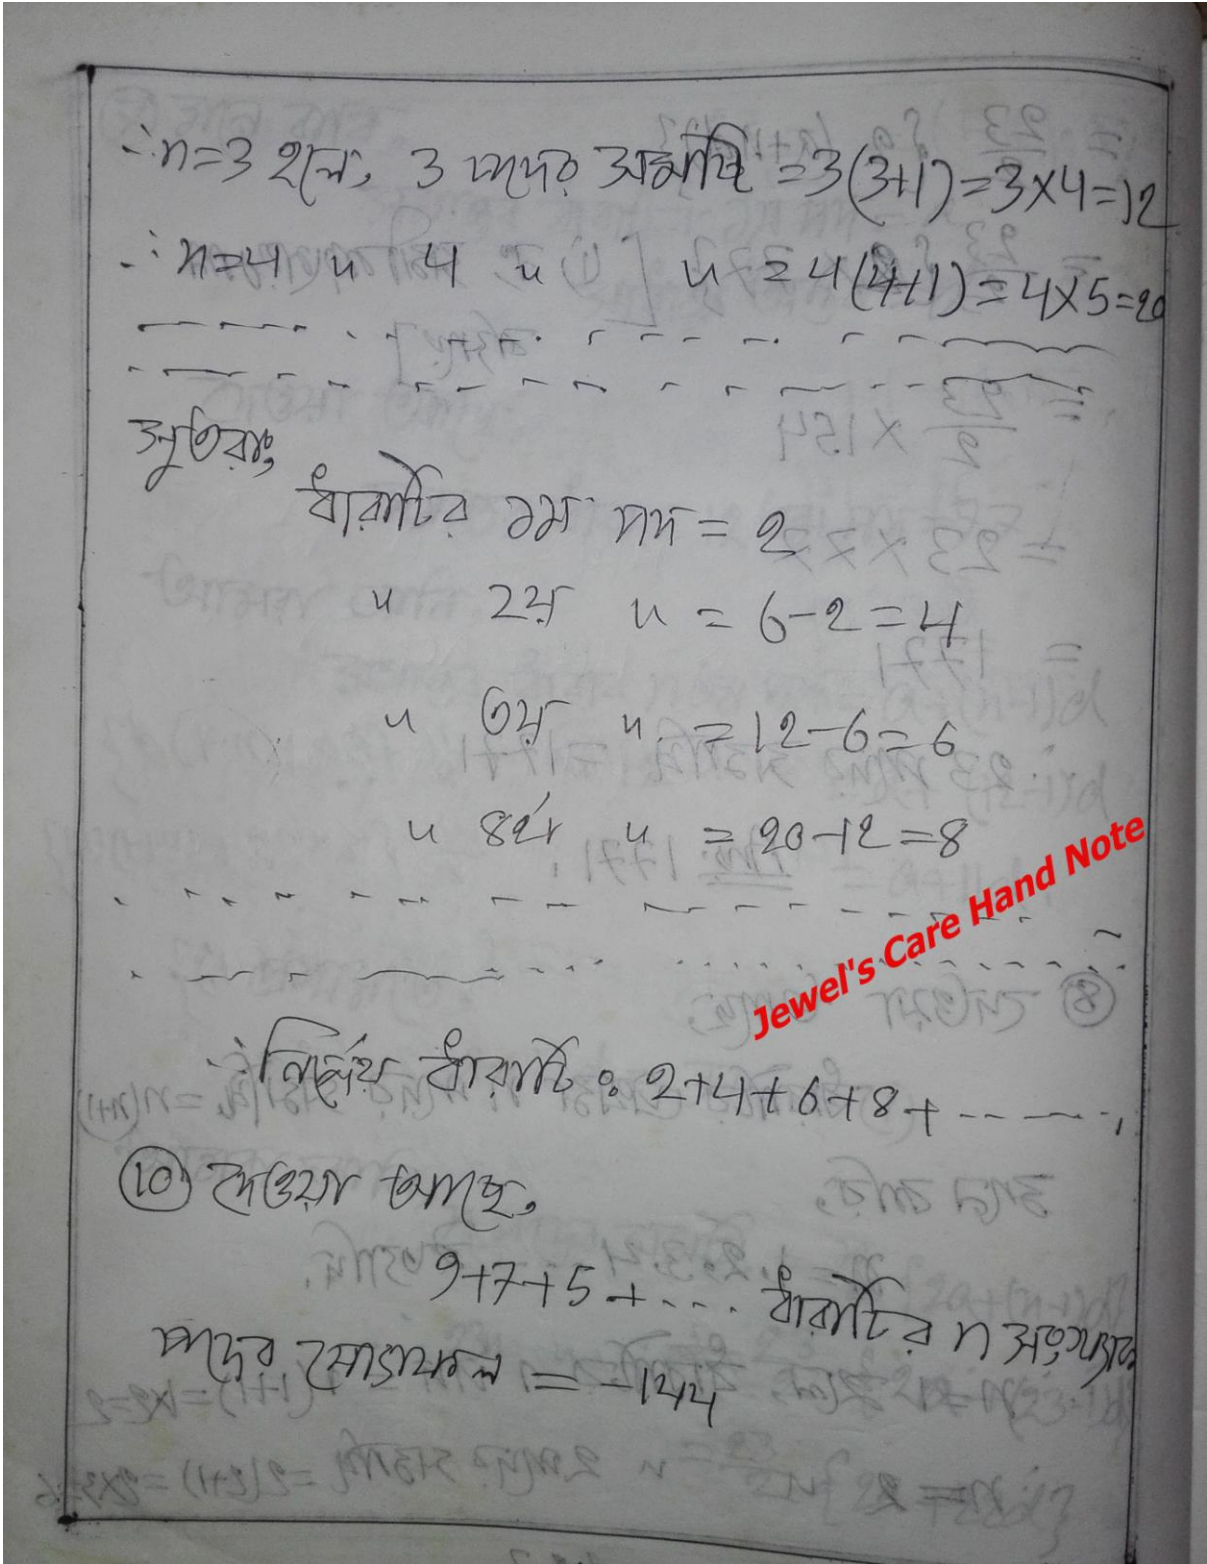 ∴ n=3 হলে, 3 পদের সমষ্টি =3(3+1)=3×4=12
∴ n=4 " 4 " " =4(4+1)=4×5=20
সুতরাং,
ধারাটির ১ম পদ = 2
" ২য় " = 6-2=4
" ৩য় " =12-6=6
" ৪র্থ " =20-12=8
Jewel's Care Hand Note
∴ নির্ণেয় ধারাটি: 2+4+6+8+ -------,
(10) দেওয়া আছে,
9+7+5+.... ধারাটির n সংখ্যক
পদের যোগফল = -144